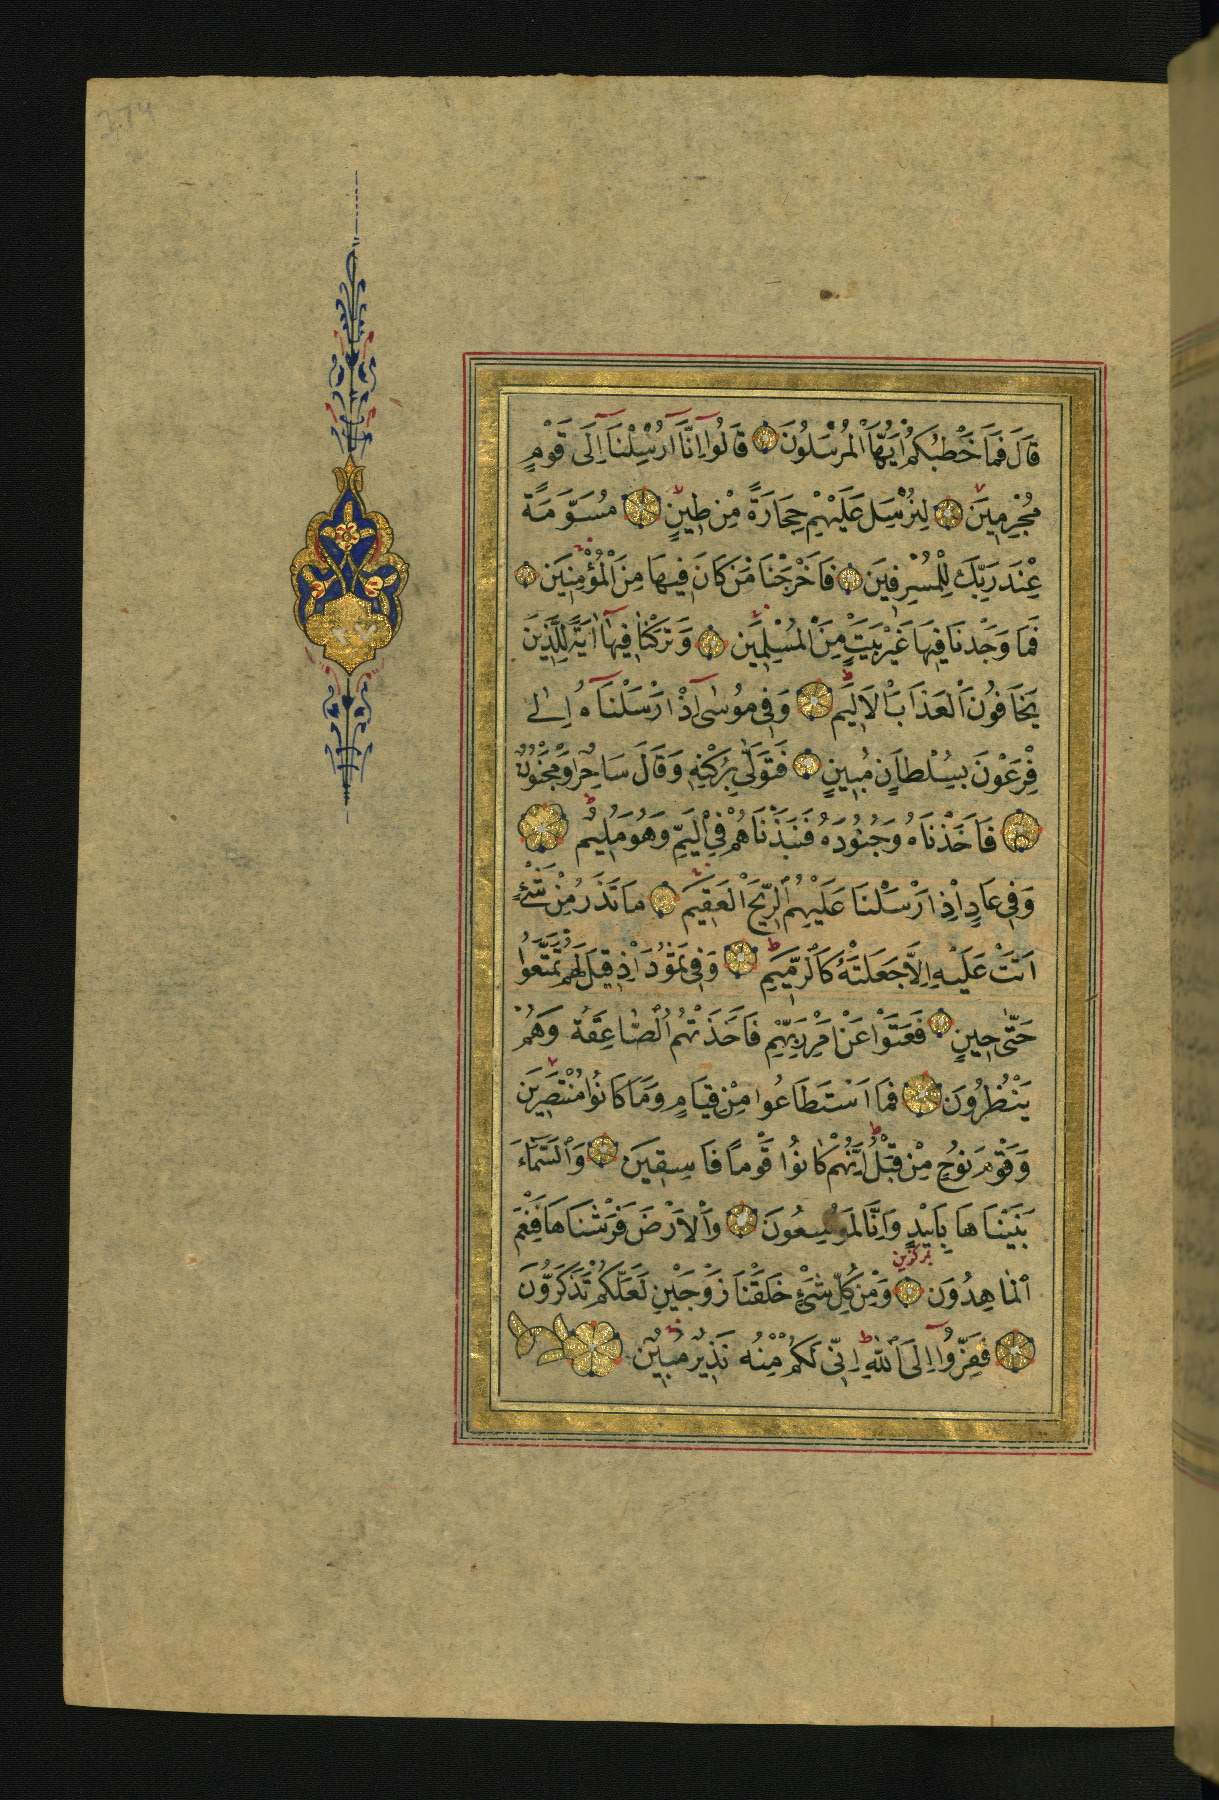 قَالَ فَمَا خَطْبُكُمْ اَيُّهَا الْمُرْسَلُونَ قَالُوا اِنَّا اُرْسِلْنَا اِلَى قَوْمٍ
مُجْرِمِينَ لِنُرْسِلَ عَلَيْهِمْ حِجَارَةً مِنْ طِينٍ مُسَوَّمَةً
عِنْدَ رَبِّكَ لِلْمُسْرِفِينَ فَاَخْرَجْنَا مَنْ كَانَ فِيهَا مِنَ الْمُؤْمِنِينَ
فَمَا وَجَدْنَا فِيهَا غَيْرَ بَيْتٍ مِنَ الْمُسْلِمِينَ وَتَرَكْنَا فِيهَا اٰيَةً لِلَّذِينَ
يَخَافُونَ الْعَذَابَ الْاَلِيمَ وَفِي مُوسٰى اِذْ اَرْسَلْنَاهُ اِلٰى
فِرْعَوْنَ بِسُلْطَانٍ مُبِينٍ فَتَوَلّٰى بِرُكْنِهِ وَقَالَ سَاحِرٌ اَوْ مَجْنُونٌ
فَاَخَذْنَاهُ وَجُنُودَهُ فَنَبَذْنَاهُمْ فِي الْيَمِّ وَهُوَ مُلِيمٌ
وَفِي عَادٍ اِذْ اَرْسَلْنَا عَلَيْهِمُ الرِّيحَ الْعَقِيمَ مَا تَذَرُ مِنْ شَيْءٍ
اَتَتْ عَلَيْهِ اِلَّا جَعَلَتْهُ كَالرَّمِيمِ وَفِي ثَمُودَ اِذْ قِيلَ لَهُمْ تَمَتَّعُوا
حَتّٰى حِينٍ فَعَتَوْا عَنْ اَمْرِ رَبِّهِمْ فَاَخَذَتْهُمُ الصَّاعِقَةُ وَهُمْ
يَنْظُرُونَ فَمَا اسْتَطَاعُوا مِنْ قِيَامٍ وَمَا كَانُوا مُنْتَصِرِينَ
وَقَوْمَ نُوحٍ مِنْ قَبْلُ اِنَّهُمْ كَانُوا قَوْمًا فَاسِقِينَ وَالسَّمَاءَ
بَنَيْنَاهَا بِاَيْدٍ وَاِنَّا لَمُوسِعُونَ وَالْاَرْضَ فَرَشْنَاهَا فَنِعْمَ
الْمَاهِدُونَ وَمِنْ كُلِّ شَيْءٍ خَلَقْنَا زَوْجَيْنِ لَعَلَّكُمْ تَذَكَّرُونَ
فَفِرُّوا اِلَى اللّٰهِ اِنِّي لَكُمْ مِنْهُ نَذِيرٌ مُبِينٌ